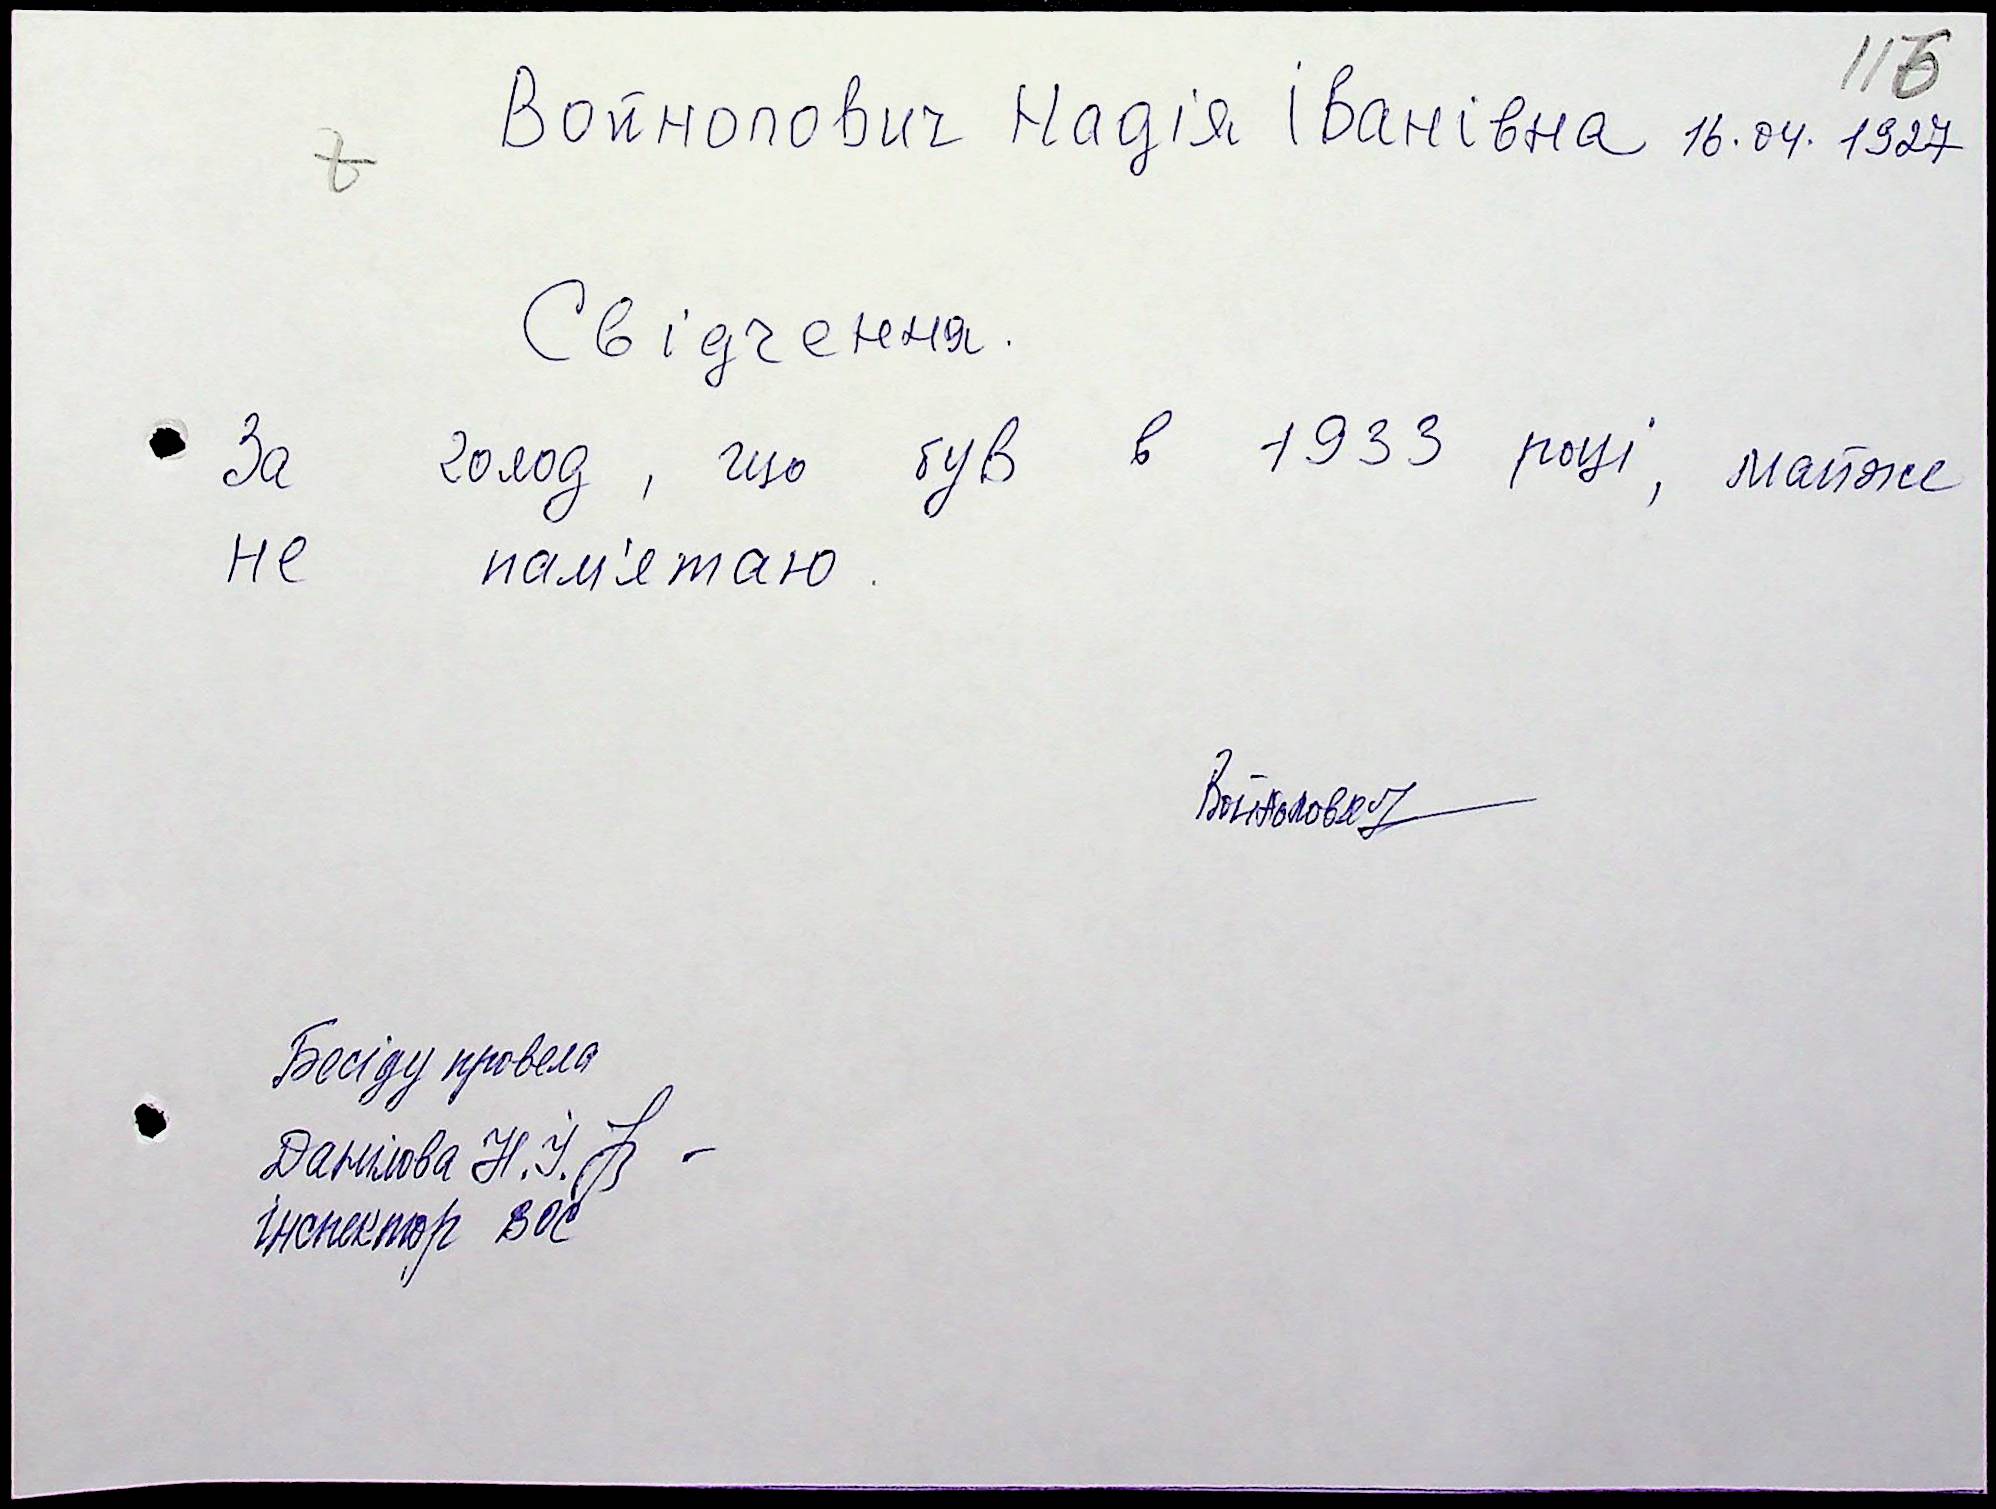 116
Войнолович Надія Іванівна 16.04.1927
Свідчення.
За голод, що був в 1933 році, майже
не пам'ятаю.
Войнолович
Бесіду провела
Данілова Н.І.
інспектор ВОС